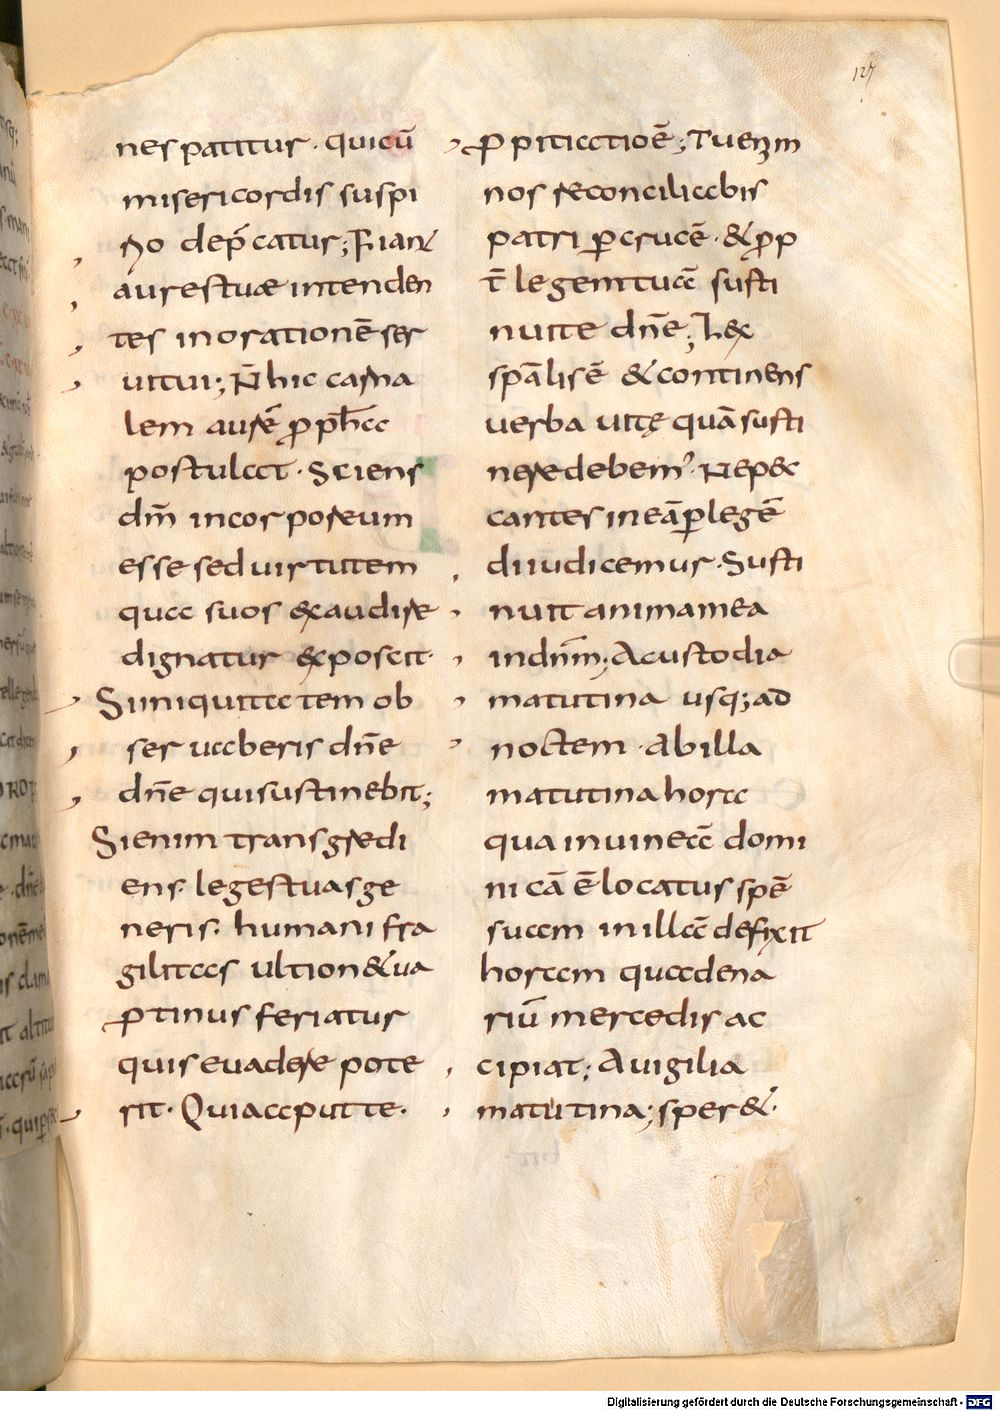 127
nes patitur · quicū
misericordis suspi
rio dep̄catur; Fiant
aures tuæ intenden
tes in orationē ser
ui tui; N̄ hic carna
lem aurē ꝓph̄a
postulat · Sciens
dm̄ incorporeum
esse sed uirtutem
qua suos exaudire
dignatur exposcit ·
Si iniquitatem ob
seruaberis dn̄e
dn̄e quis sustinebit;
Si enim transgredi
ens · leges tuas ge
neris · humani fra
gilitas ultione ua
ꝓtinus feriatur
quis euadere pote
rit · Quia aput te ·
ꝓpitiatio ē; Tu enim
nos reconciliabis
patri ꝑ crucē · & ꝓp
t̄ legem tuā susti
nui te dn̄e; Lex
sp̄alis ē & continens
verba uitę quā susti
nere debem' · Ne pec
cantes in eā ꝑ legē
diiudicemur · Susti
nuit anima mea
in dn̄m; A custodia
matutina usq; ad
noctem · Ab illa
matutina hora
qua in uineā domi
nicā ē locatus spē
suam in illā defixit
horam qua dena
riū mercedis ac
cipiat; A uigilia
matutina; sper&·
Digitalisierung gefördert durch die Deutsche Forschungsgemeinschaft - DFG